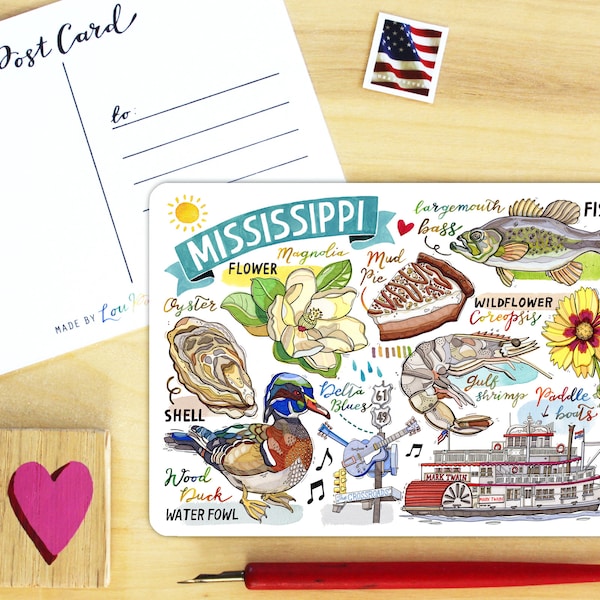 Post Card
to:
MADE BY
MISSISSIPPI
largemouth
bass
Magnolia
FLOWER
Mud
Pie
WILDFLOWER
Coreopsis
Oyster
SHELL
Delta
Blues
61
49
Gulf
shrimp
Paddle
boats
Wood
Duck
WATER FOWL
MARK TWAIN
MARK TWAIN